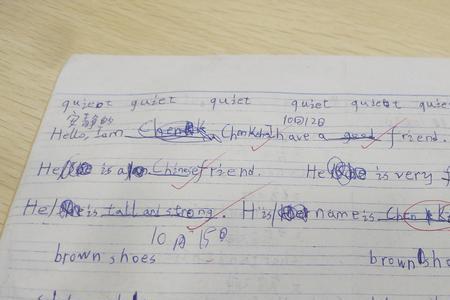 quieot quiet quiet quiet quiebt quie
安静的 10月12日
Hello, I am Chen K Chenkai I have a good friend.
He/ is a Chinese friend. He is very f
He/ is tall and strong. His/Her name is Chen K
10月15日
brown shoes brown sho